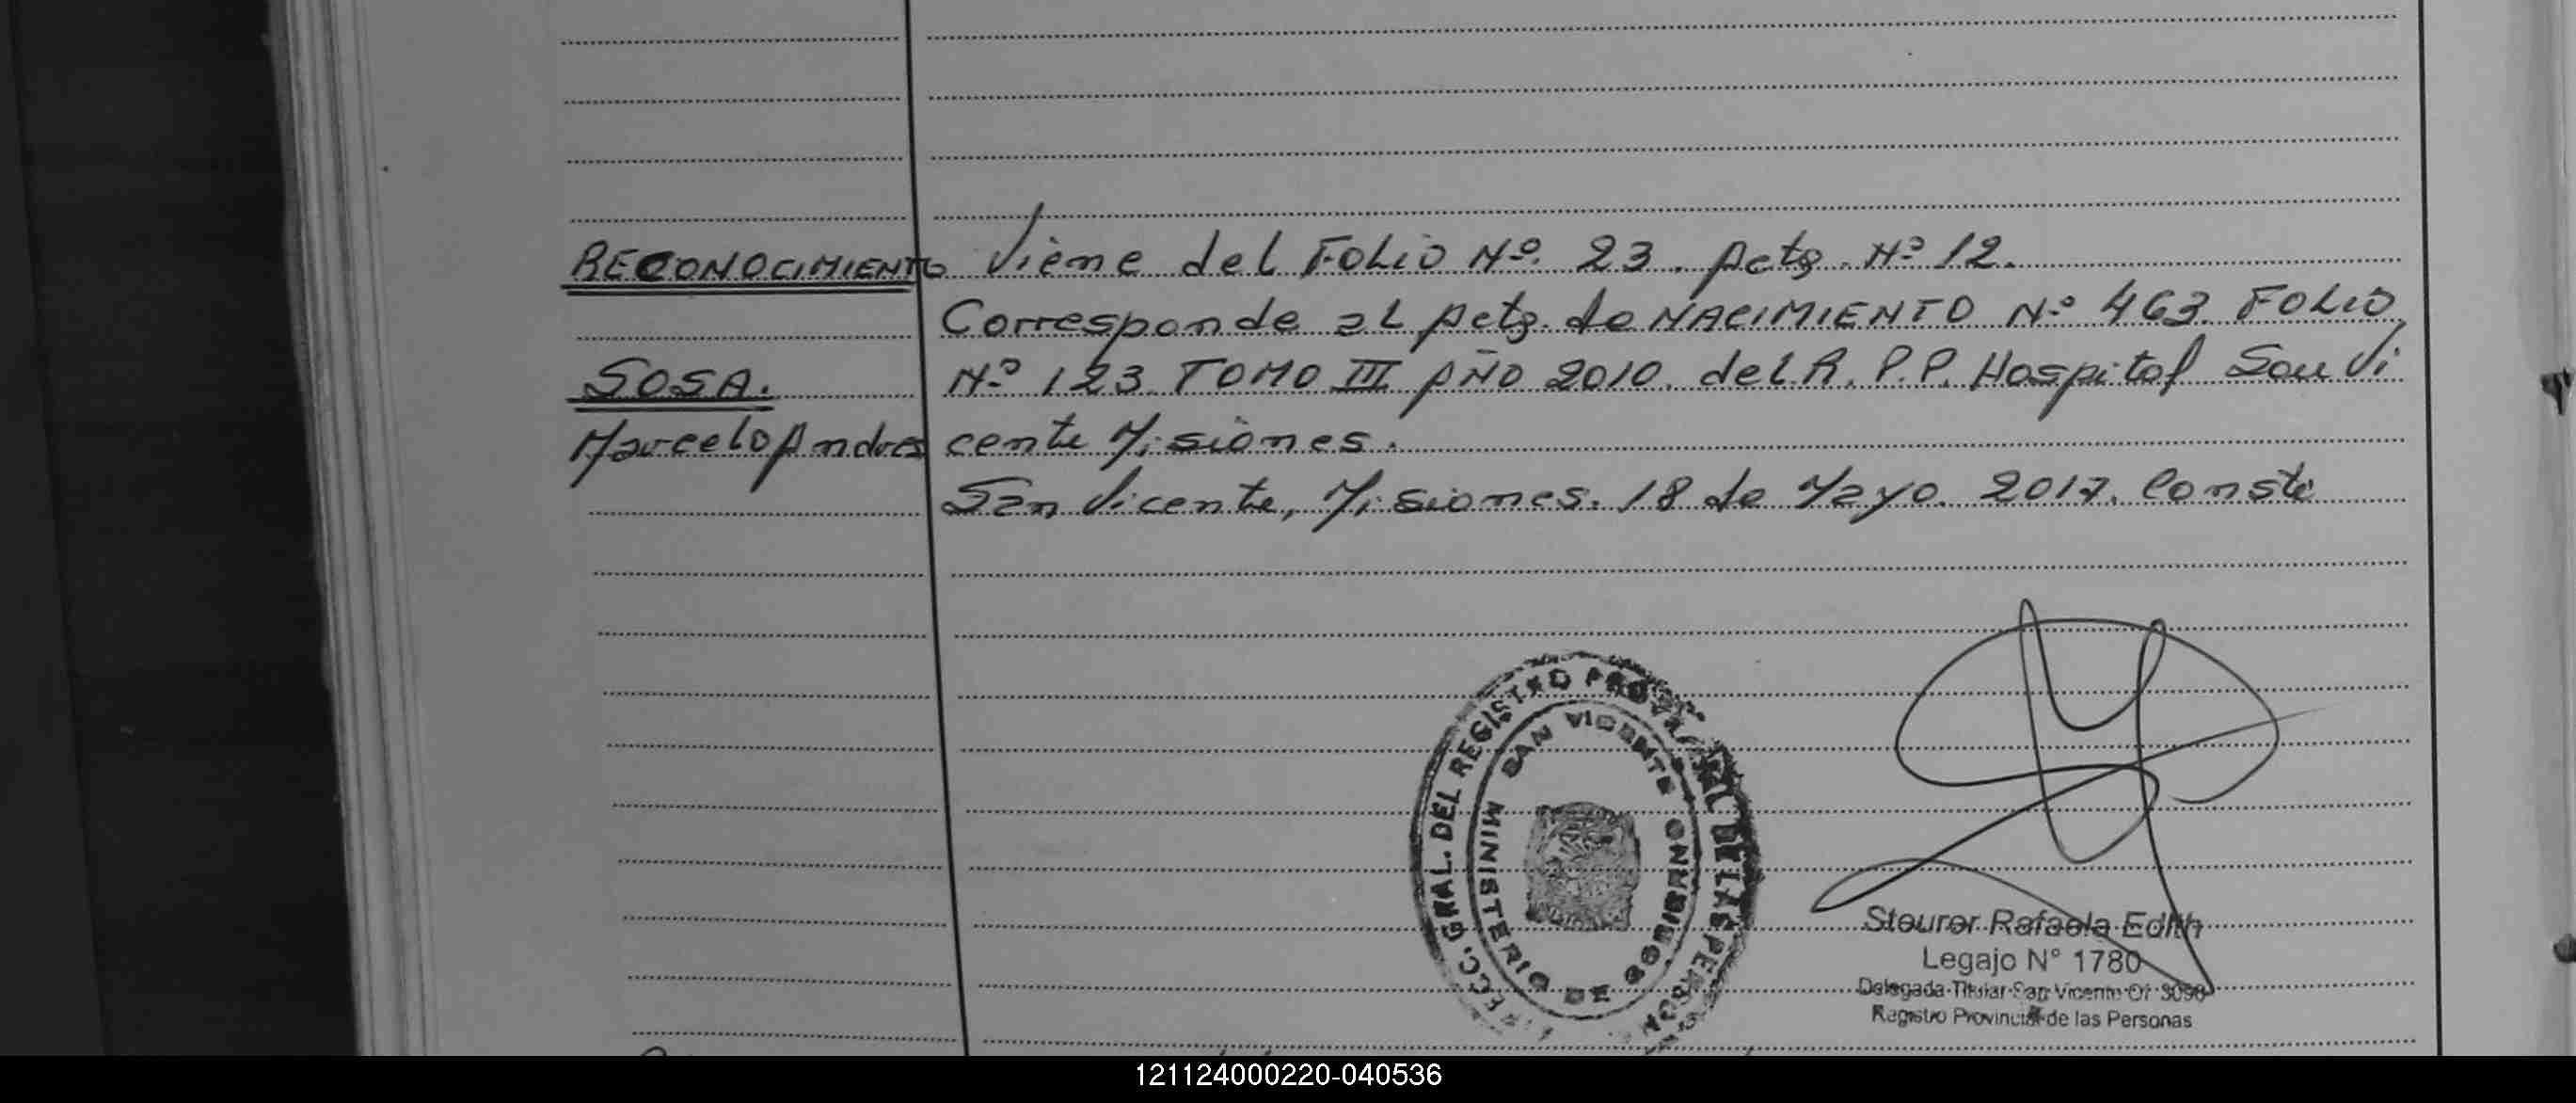 RECONOCIMIENTO Viene del Folio Nº. 23. Acta. Nº 12.
Corresponde al Acta. de NACIMIENTO Nº 463. FOLIO
SOSA. Nº 123. TOMO III AÑO 2010. del R. P. P. Hospital San Vi
Marcelo Andres cente Misiones.
San Vicente, Misiones. 18 de Mayo. 2017. Conste
DIRECC. GRAL. DEL REGISTRO PROVINCIAL DE LAS PERSONAS
SAN VICENTE
MISIONES
MINISTERIO DE
Steurer Rafaela Edith
Legajo N° 1780
Delegada Titular San Vicente Of 3090
Registro Provincial de las Personas
121124000220-040536